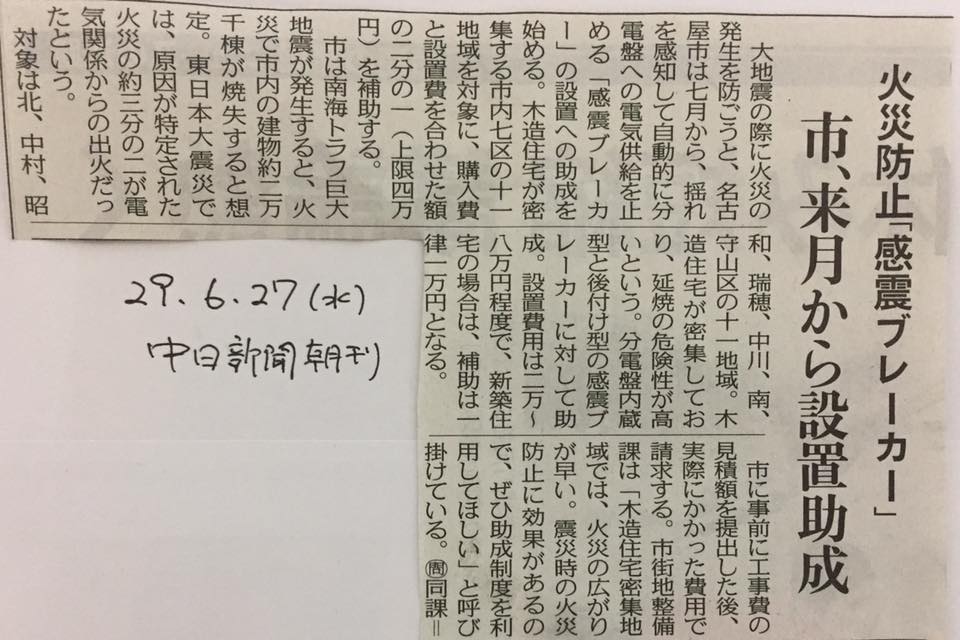 火災防止「感震ブレーカー」
市、来月から設置助成
大地震の際に火災の
発生を防ごうと、名古
屋市は七月から、揺れ
を感知して自動的に分
電盤への電気供給を止
める「感震ブレーカ
ー」の設置への助成を
始める。木造住宅が密
集する市内七区の十一
地域を対象に、購入費
と設置費を合わせた額
の二分の一（上限四万
円）を補助する。
市は南海トラフ巨大
地震が発生すると、火
災で市内の建物約二万
千棟が焼失すると想
定。東日本大震災で
は、原因が特定された
火災の約三分の二が電
気関係からの出火だっ
たという。
対象は北、中村、昭
和、瑞穂、中川、南、
守山区の十一地域。木
造住宅が密集してお
り、延焼の危険性が高
いという。分電盤内蔵
型と後付け型の感震ブ
レーカーに対して助
成。設置費用は二万～
八万円程度で、新築住
宅の場合は、補助は一
律一万円となる。
市に事前に工事費の
見積額を提出した後、
実際にかかった費用で
請求する。市街地整備
課は「木造住宅密集地
域では、火災の広がり
が早い。震災時の火災
防止に効果があるの
で、ぜひ助成制度を利
用してほしい」と呼び
掛けている。㉄同課＝
29.6.27(水)
中日新聞朝刊